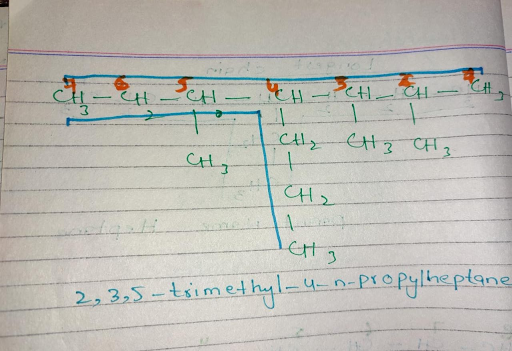 7 6 5 4 3 2 1
CH3 - CH2 - CH - CH - CH - CH - CH3
CH3 CH2 CH3 CH3
CH2
CH3
2,3,5-trimethyl-4-n-propylheptane